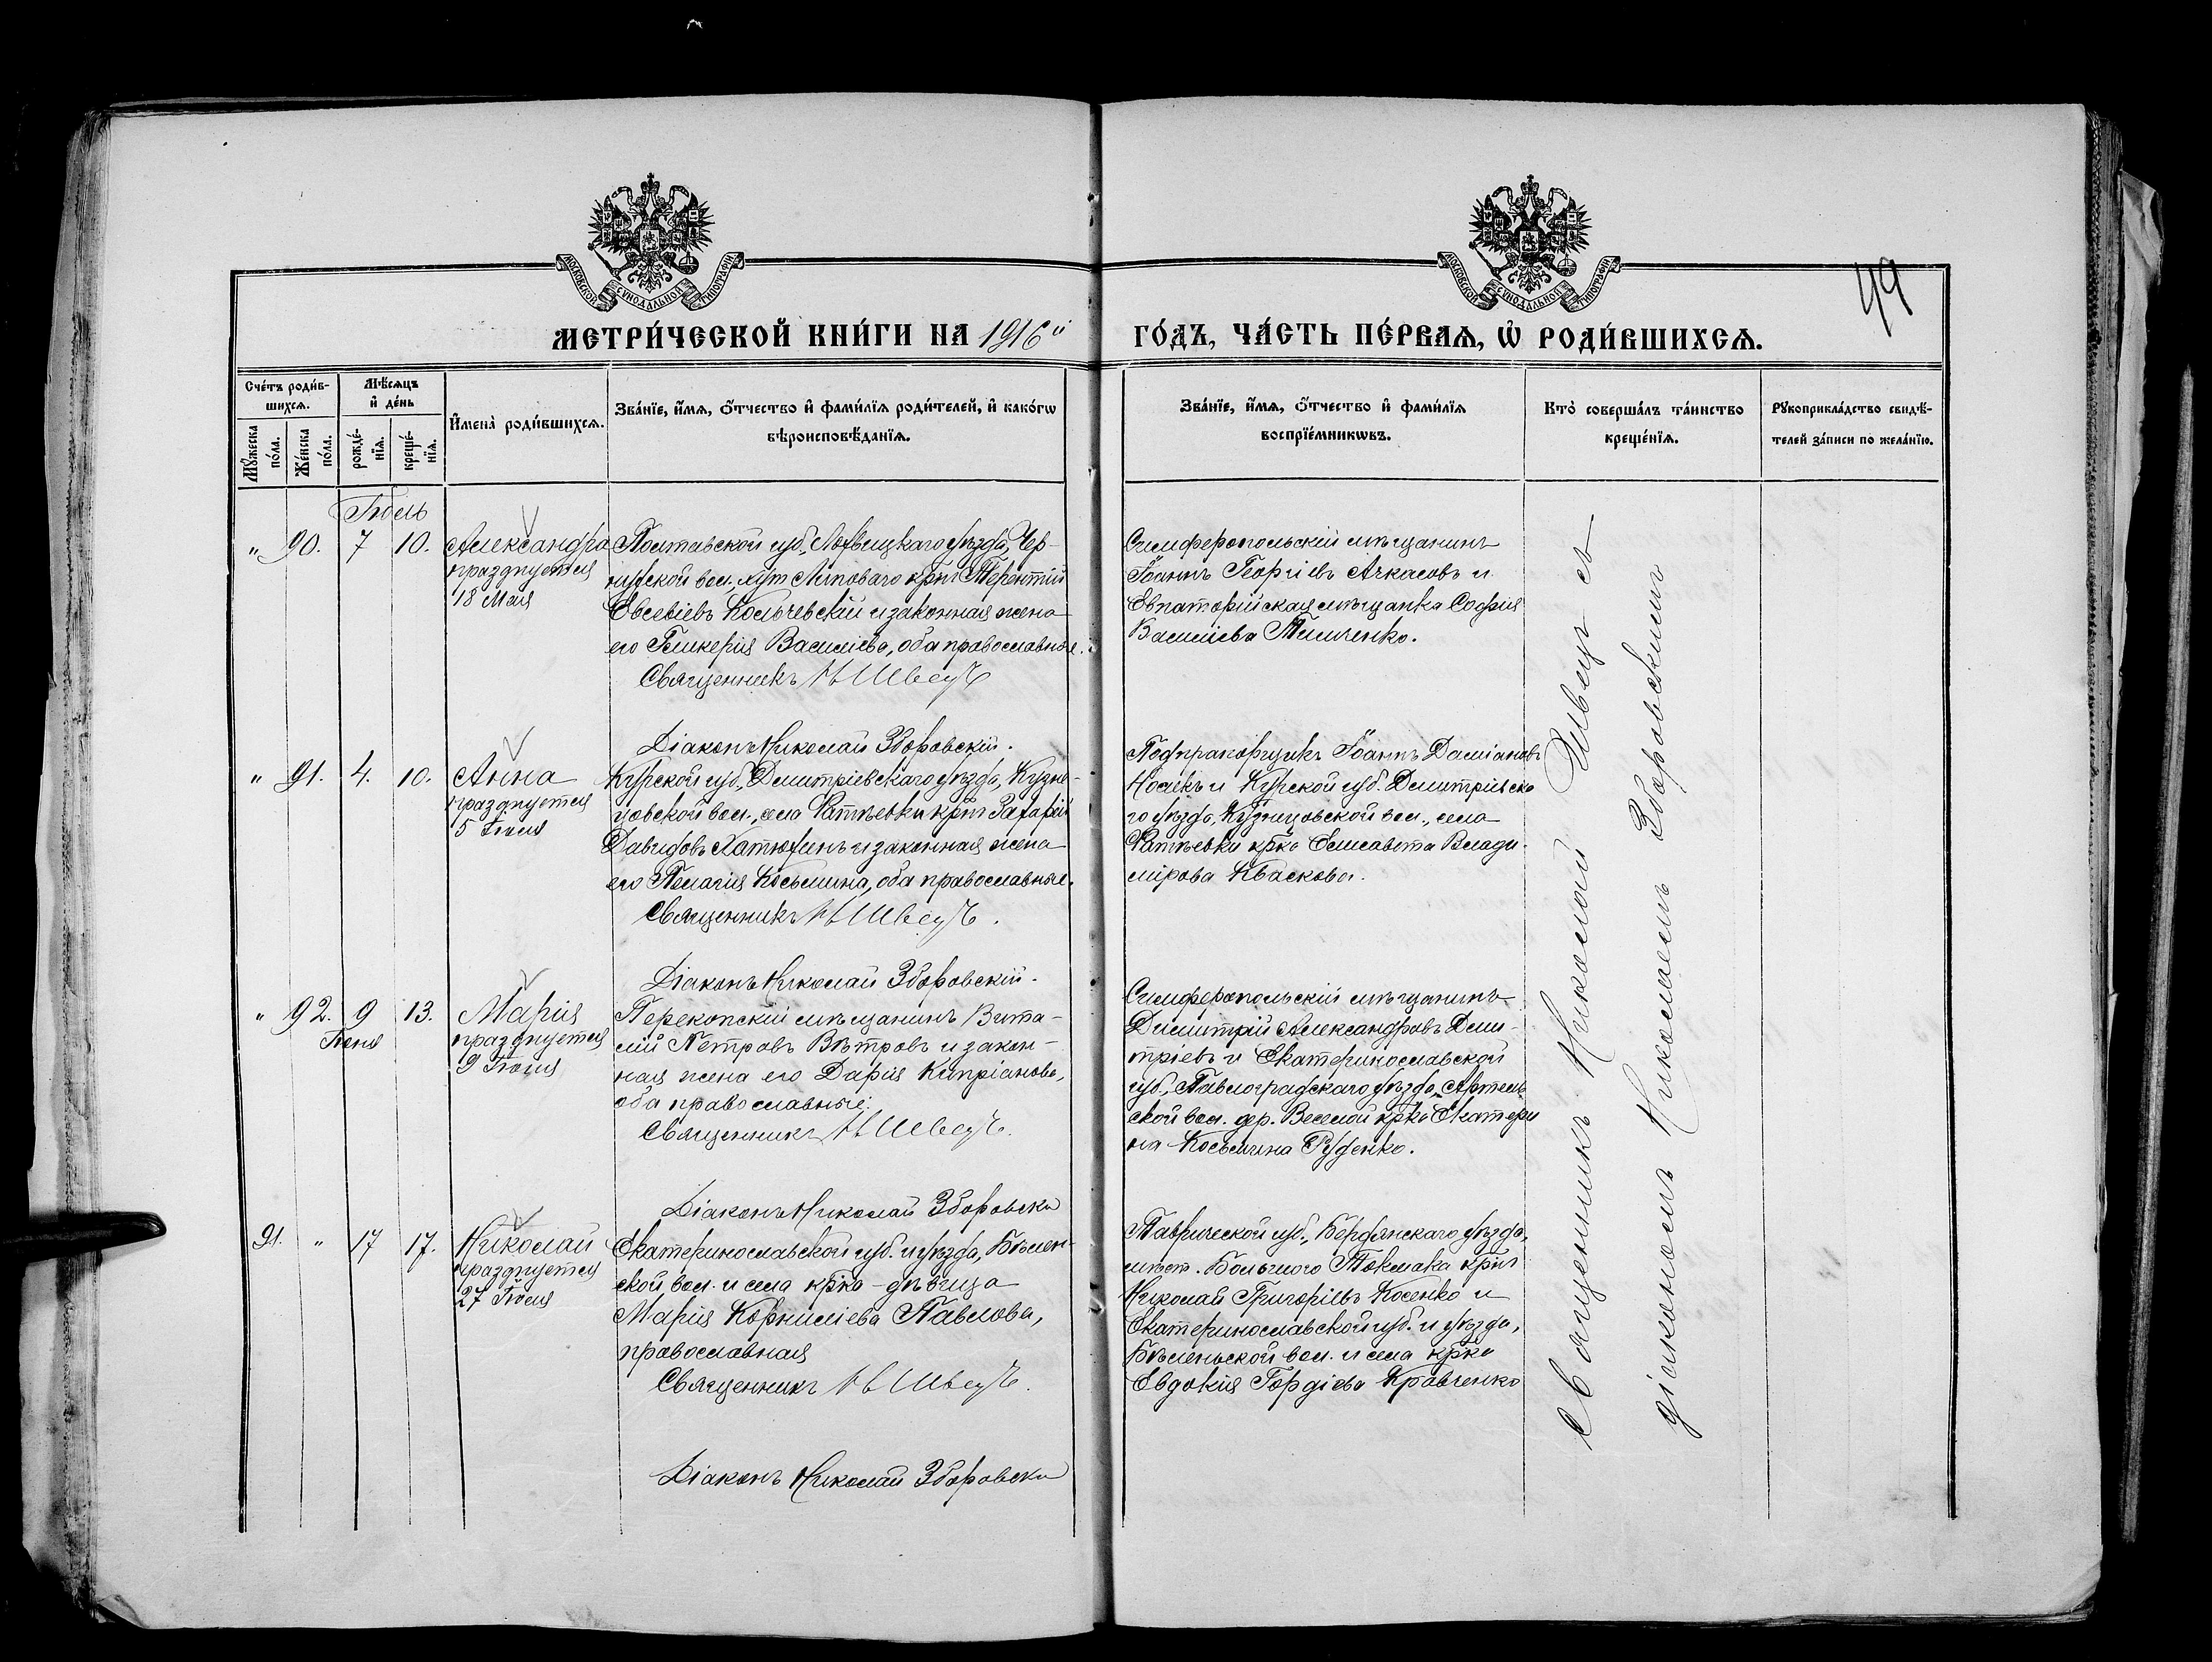 МОСКОВСКОЙ СѴНОДАЛЬНОЙ ТИПОГРАФІИ
МОСКОВСКОЙ СѴНОДАЛЬНОЙ ТИПОГРАФІИ
49
МЕТРИ́ЧЕСКОЙ КНИ́ГИ НА 1916й
ГО́ДЪ, ЧА́СТЬ ПЕ́РВАЯ, Ѡ҆ РОДИ́ВШИХСЯ.
Сче́тъ роди́в-
шихсѧ.
Мѣ́сѧцъ
и҆ де́нь
Мꙋ́жеска по́ла.
Же́нска по́ла.
рожде́-
нїѧ.
креще́-
нїѧ.
И҆мена̀ роди́вшихсѧ.
Зва́нїе, и҆́мѧ, ѻ҆́тчество и҆ фамилїѧ роди́телей, и҆ како́гѡ
вѣроисповѣ́данїѧ.
Зва́нїе, и҆́мѧ, ѻ҆́тчество и҆ фами́лїѧ
воспрїе́мникѡвъ.
Кто̀ соверша́лъ та́инство
креще́нїѧ.
Рꙋкоприкла́дство свидѣ́-
телей за́писи по жела́нїю.
Іюль
" 90. 7 10. Александра
празднуется
18 Мая
Полтавской губ., Лохвицкаго уѣзда, Чер-
нухской вол., хут. Липоваго крнъ Терентій
Евсевіевъ Кольчевскій и законная жена
его Гликерія Василіева, оба православные.
Священникъ Н Швецъ
Діаконъ Николай Зборовскій.
Симферопольскій мѣщанинъ
Іоаннъ Георгіевъ Ачкасовъ и
Евпаторійская мѣщанка Софія
Василіева Тимченко.
" 91. 4. 10. Анна
празднуется
5 Іюля
Курской губ., Дмитріевскаго уѣзда, Кузне-
цовской вол., села Фатѣевки крнъ Захарій
Давидовъ Хатюхинъ и законная жена
его Пелагія Косьмина, оба православные.
Священникъ Н Швецъ.
Діаконъ Николай Зборовскій.
Подпрапорщикъ Іоаннъ Даміановъ
Носикъ и Курской губ. Дмитріевска
го уѣзда, Кузнецовской вол., села
Фатѣевки крка Елисавета Влади-
мірова Кваскова.
" 92. 9 13. Марія
Іюня
празднуется
9 Іюля
Перекопскій мѣщанинъ Вита-
лій Петровъ Вѣтровъ и закон-
ная жена его Дарія Кипріанова,
оба православные.
Священникъ Н Швецъ.
Діаконъ Николай Зборовскі
Симферопольскій мѣщанинъ
Димитрій Александровъ Дми-
тріевъ и Екатеринославской
губ., Павлоградскаго уѣзда,
ской вол. дер. Веселой крка Екатери
на Косьмина Руденко.
91. " 17 17. Николай
празднуется
27 Іюля
Екатеринославской губ. и уѣзда, Бѣлен-
ской вол. и села крка - дѣвица
Марія Корниліева Павлова,
православная
Священникъ Н Швецъ.
Діаконъ Николай Зборовскі
Таврической губ., Бердянскаго уѣзда,
мѣст. Большого Токмака крнъ
Николай Григоріевъ Косенко и
Екатеринославской губ. и уѣзда,
Бѣленьской вол. и села крка
Евдокія Гордіева Кравченко
Священникъ Николай Швецъ съ
діакономъ Николаемъ Зборовскимъ